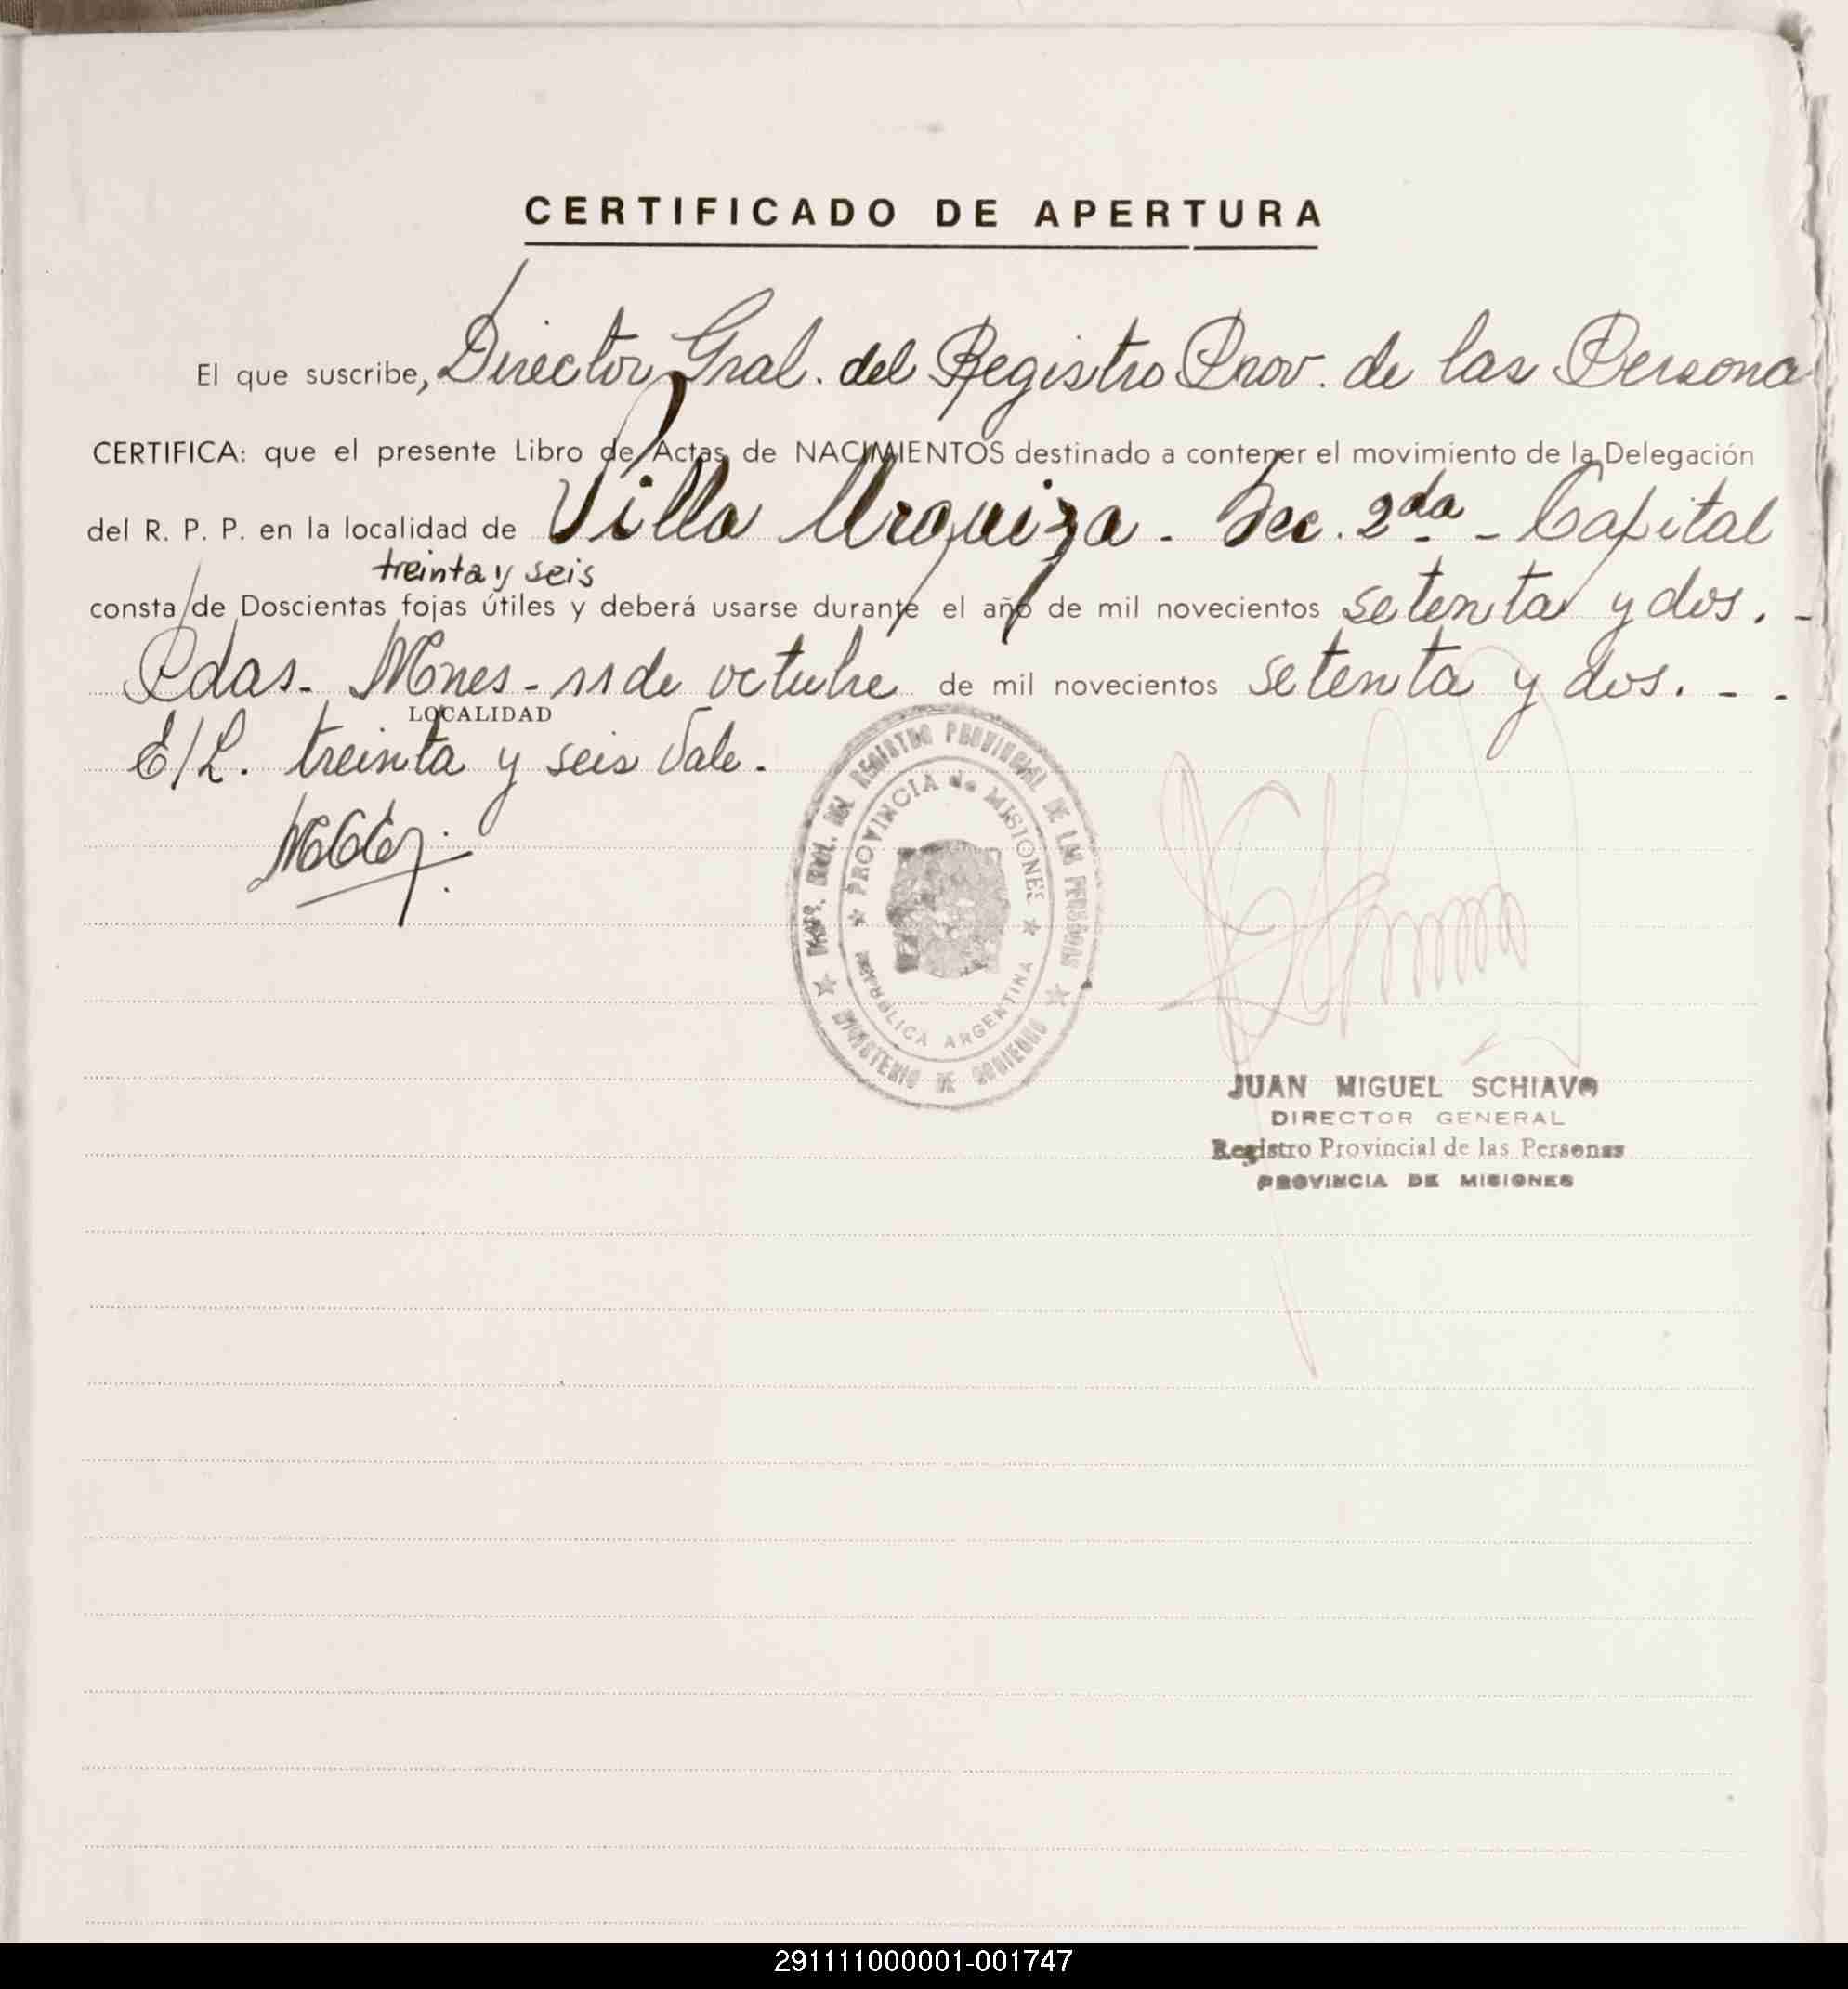 CERTIFICADO DE APERTURA
El que suscribe, Director Gral. del Registro Prov. de las Persona
CERTIFICA: que el presente Libro de Actas de NACIMIENTOS destinado a contener el movimiento de la Delegación
del R. P. P. en la localidad de Villa Urquiza - Sec. 2da - Capital
treinta y seis
consta de Doscientas fojas útiles y deberá usarse durante el año de mil novecientos setenta y dos. -
Pdas - Mnes - 11 de octubre de mil novecientos setenta y dos. - -
LOCALIDAD
E/L. treinta y seis Vale.
REGISTRO PROVINCIAL DE LAS PERSONAS
PROVINCIA de MISIONES
REPUBLICA ARGENTINA
MINISTERIO DE GOBIERNO
JUAN MIGUEL SCHIAVO
DIRECTOR GENERAL
Registro Provincial de las Personas
PROVINCIA DE MISIONES
291111000001-001747